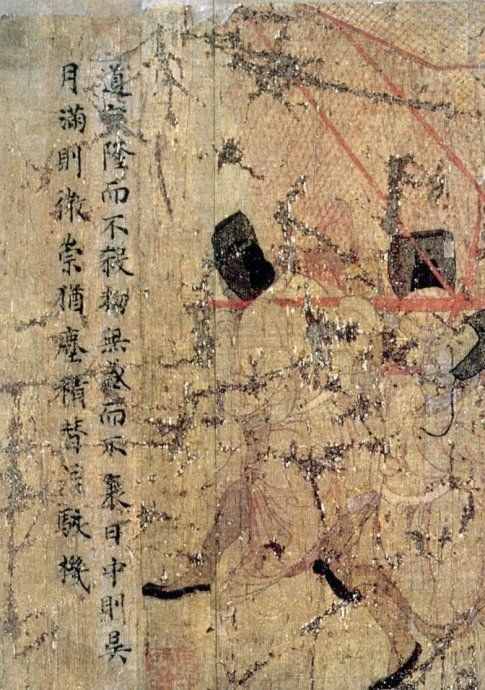 道罔隆而不殺物無盛而不衰日中則昃
月滿則微崇猶塵積替若駭機